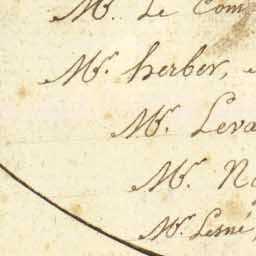 Mr. Le Com
Mr. herber,
Mr. Leva
Mr. No
Mr. Lesné,